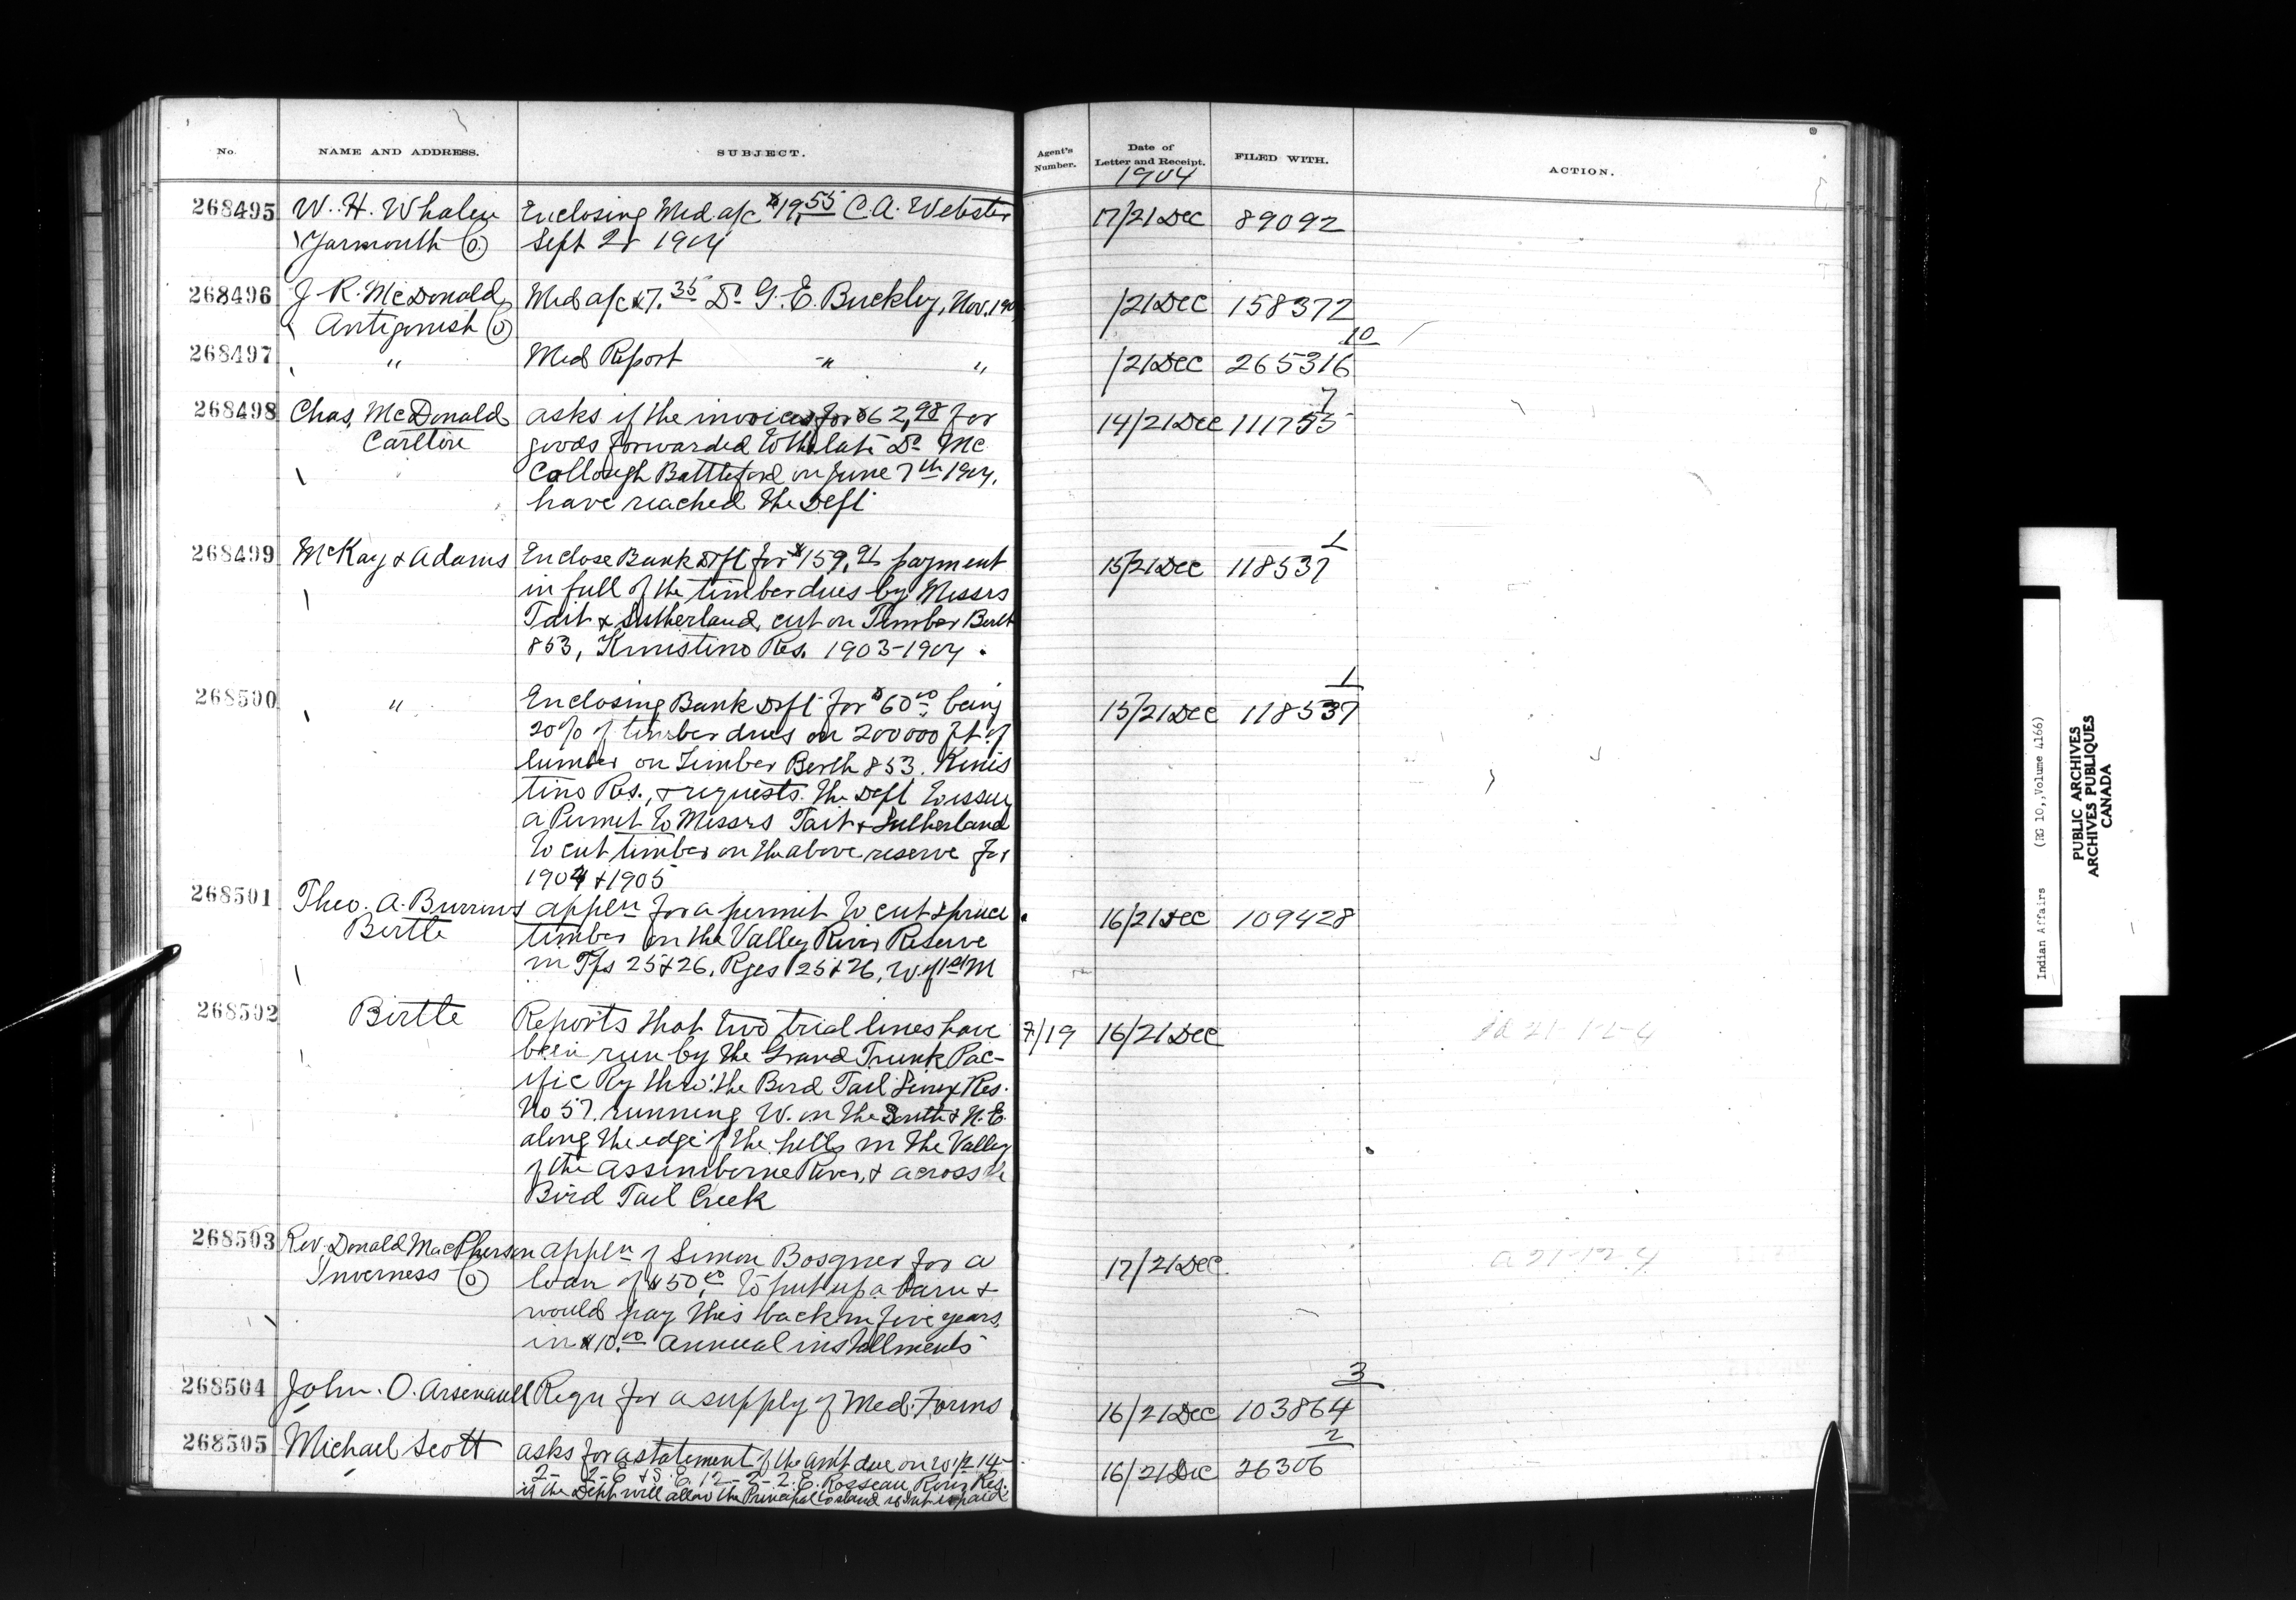 No. NAME AND ADDRESS. SUBJECT. Agent's Number. Date of Letter and Receipt. FILED WITH. ACTION.
1904
268495 W. H. Whalen Enclosing Med a/c $19.55 C. A. Webster 17/21 Dec 89092
Yarmouth (O) Sept 1904
268496 J. R. McDonald Med a/c $7.35 Dr G. E. Buckley, Nov. 21 Dec 158372
Antigonish (O)
10
268497 " Med Report " " /21 Dec 265316
7
268498 Chas, McDonald asks if the invoices for $62,98 for 14/21 Dec
Carlton goods forwarded to the late Dr Mc
Collough Battleford on June 7th 1904,
have reached the Dept
1
268499 McKay & Adams Enclose Bank Dft for $159. payment 15/21 Dec 118537
in full of the timber dues by Messrs
Tait & Sutherland, cut on Timber Berth
853, Kinistino Res. 1903-1904.
1
268500 " Enclosing Bank Dft for $60.00 being 15/21 Dec 118537
20% of timber dues on 200000 ft of
lumber on Timber Berth 853. Kinis
tino Res., & requests the Dept to issue
a Permit to Messrs Tait & Sutherland
to cut timber on the above reserve for
1904 & 1905
268501 Theo. A. Burrows appln for a permit to cut spruce 16/21 Dec 109428
Birtle timber on the Valley River Reserve
in Tps 25 & 26, Rges 25 & 26, W of 1st M
268502 Birtle Reports that two trial lines have 7/19 16/21 Dec
been run by the Grand Trunk Pac-
ific Ry thro' the Bird Tail Sioux Res.
No 57. running W. in the South & N. E.
along the edge of the hills in the Valley
of the Assiniboine River, & across the
Bird Tail Creek
268503 Rev. Donald MacPherson appln of Simon Bosgner for a 17/21 Dec. a 21-12-4
Inverness (O) loan of $50.00 to put up a barn &
would pay this back in five years
in $10.00 annual installments
3
268504 John. O. Arsenault Requ for a supply of Med. Forms 16/21 Dec 103864
2
268505 Michael Scott asks for a statement of the amt due on W 1/2 14- 16/21 Dec 26306
2-2-E & S. E. 12-2-2. E. Rosseau River Res.
if the Dept will allow the Principal to stand
Indian Affairs (RG 10, Volume 4166)
PUBLIC ARCHIVES
ARCHIVES PUBLIQUES
CANADA